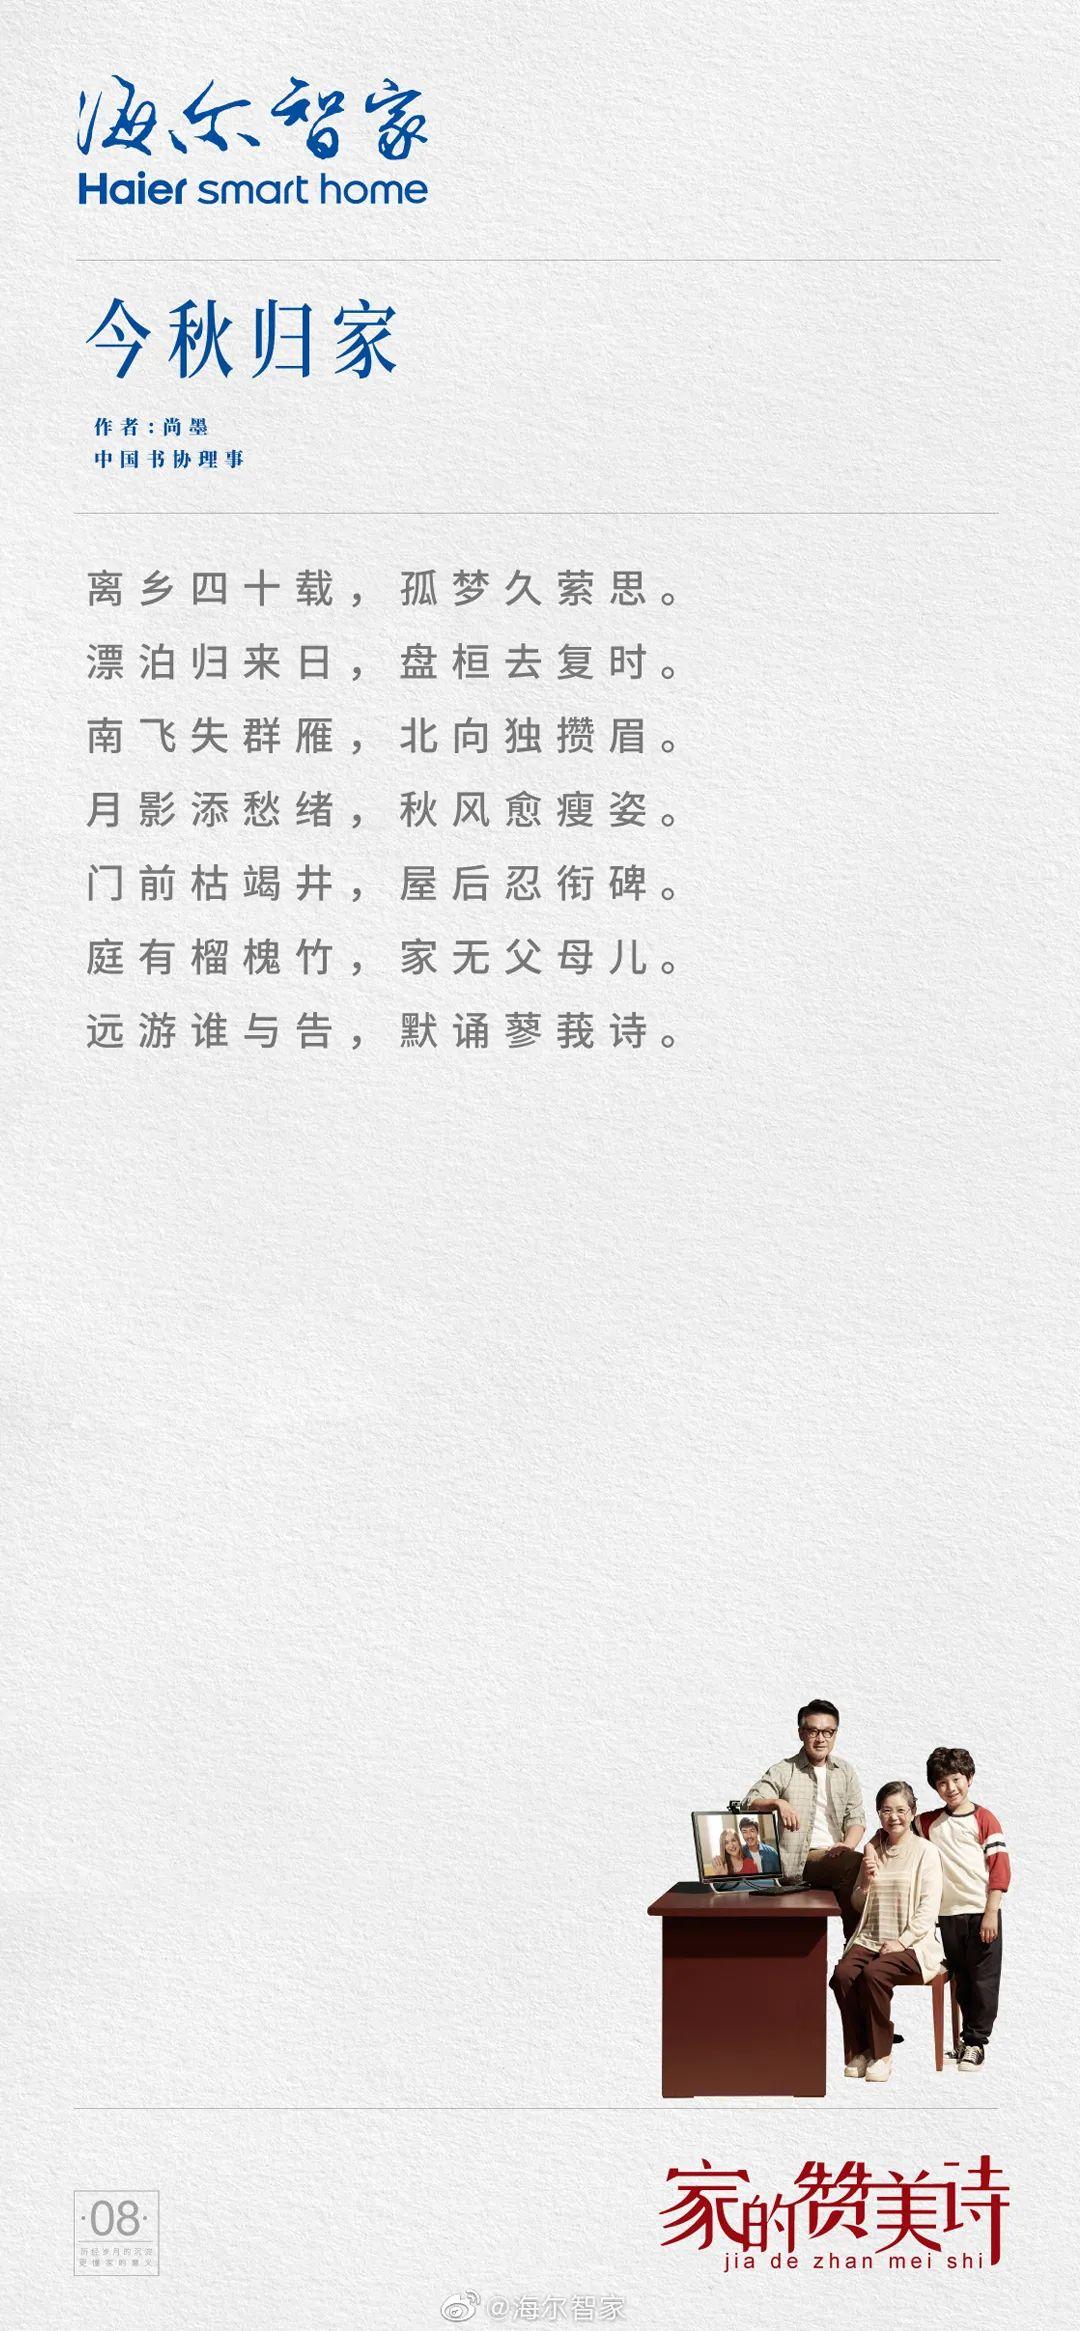 海尔智家
Haier smart home
今秋归家
作者:尚墨
中国书协理事
离乡四十载，孤梦久萦思。
漂泊归来日，盘桓去复时。
南飞失群雁，北向独攒眉。
月影添愁绪，秋风愈瘦姿。
门前枯竭井，屋后忍衔碑。
庭有榴槐竹，家无父母儿。
远游谁与告，默诵蓼莪诗。
家的赞美诗
jia de zhan mei shi
·08·
历经岁月的沉淀
更懂家的意义
@海尔智家